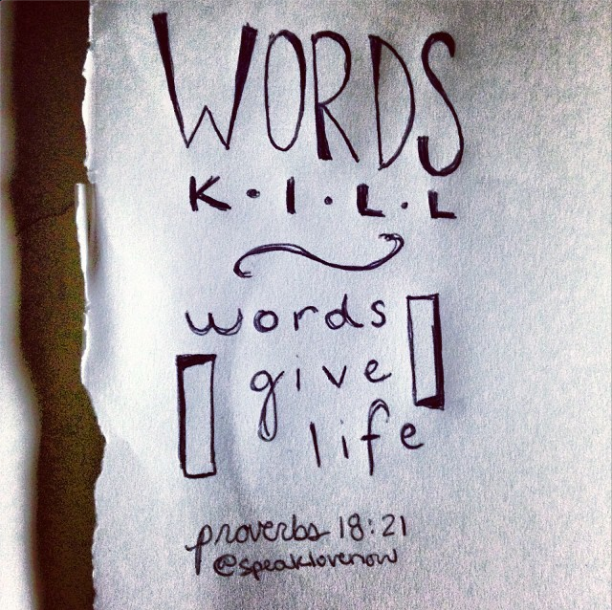 WORDS
K·I·L·L
words
give
life
proverbs 18:21
@speaklovenow